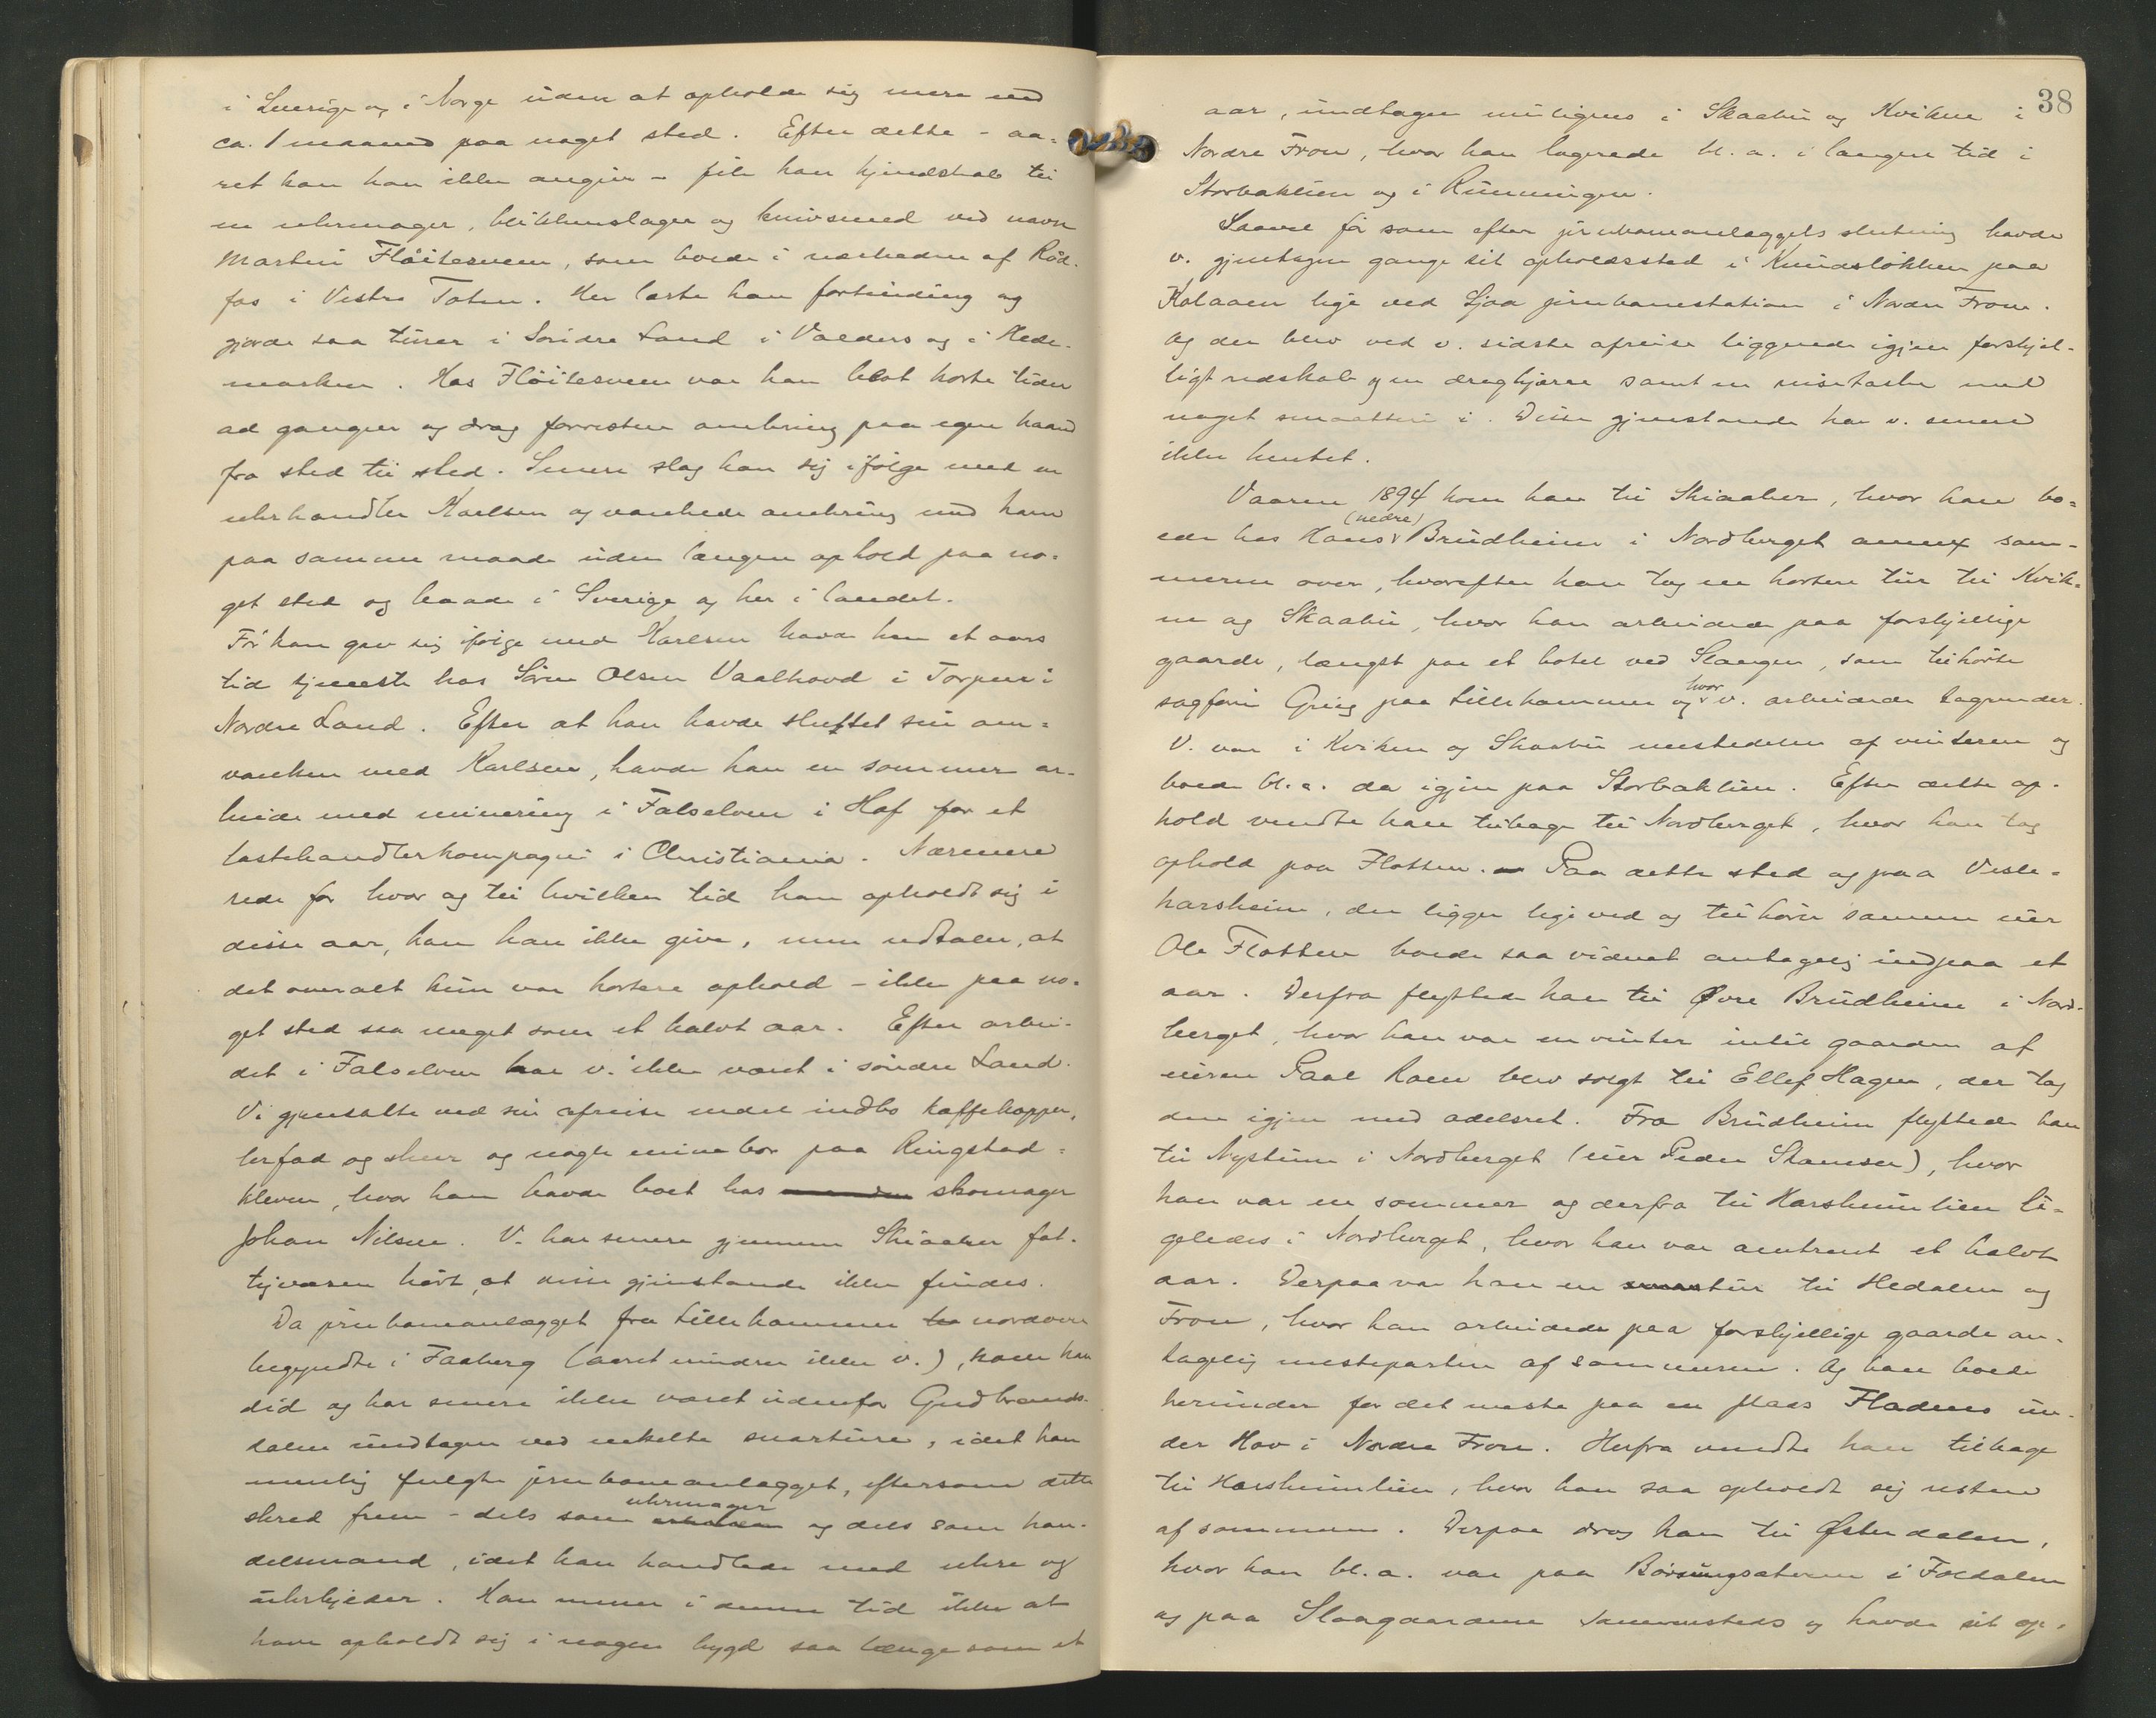 i Sverige og i Norge uden at opholde sig mere end
ca. 1 maaned paa noget sted. Efter dette - aa-
ret kan han ikke angive - fik han kjendskab til
en uhrmager, blikkenslager og knivsmed ved navn
Martin Flöitesveen, som boede i nærheden af Röd-
fos i Vestre Toten. Her lærte han fortinding og
gjorde saa turer i Söndre Land i Valders og i Hede-
marken. Hos Flöitesveen var han blot korte tider
ad gangen og drog forresten omkring paa egen haand
fra sted til sted. Senere slog han sig ifölge med en
uhrhandler Karlsen og vankede omkring med ham
paa samme maade uden længere ophold paa no-
get sted og baade i Sverige og her i landet.
För han gav sig ifölge med Karlsen havde han et aars
tid tjeneste hos Sören Olsen Vaalhovd i Torpen i
Nordre Land. Efter at han havde sluttet sin om-
vanken med Karlsen, havde han en sommer ar-
beide med minering i Falselven i Hof for et
lastehandlerkompagni i Christiania. Nærmere
rede for hvor og til hvilken tid han opholdt sig i
disse aar, kan han ikke give, men udtaler, at
det overalt kun var kortere ophold - ikke paa no-
get sted saa meget som et halvt aar. Efter arbei-
det i Falselven har v. ikke været i söndre Land.
Vi gjensatte ved sin afreise endel indbo kaffekopper,
lerfad og skeer og nogle minebor paa Ringstad-
kleven, hvor han havde boet hos skomager
Johan Nilsen. V. har senere gjennem Skiaaker fat-
tigvæsen hört, at disse gjenstande ikke findes.
Da jernbaneanlægget fra Lillehammer nordover
begyndte i Faaberg (aaret mindes ikke v.), kom han
did og har senere ikke været udenfor Gudbrands-
dalen undtagen ved enkelte snarturer, idet han
nemlig fulgte jernbaneanlægget, eftersom dette
skred frem - dels som uhrmager og dels som han-
delsmand, idet han handlede med uhre og
uhrkjeder. Han mener i denne tid ikke at
have opholdt sig i nogen bygd saa længe som et
38
aar, undtagen muligens i Skaabu og Kvikne i
Nordre Fron, hvor han logerede bl. a. i længere tid i
Storbaklien og i Rünningen.
Saavel för som efter jernbaneanlæggets slutning havde
v. gjentagne gange sit opholdssted i Knudslökken paa
Kolaaen lige ved Sjoa jernbanestation i Nordre Fron.
Og der blev ved v. sidste afreise liggende igjen forskjel-
ligt redskab og en dragkjærre samt en reisetaske med
noget smaatteri i. Disse gjenstande har v. senere
ikke hentet.
Vaaren 1894 kom han til Skiaaker, hvor han bo-
ede hos Hans (nedre) Brudheim i Nordberget annex som-
meren over, hvorefter han tog en kortere tur til Kvik-
ne og Skaabu, hvor han arbeidede paa forskjellige
gaarde, længst paa et hotel ved Slangen, som tilhörte
sagförer Grieg paa Lillehammer og hvor v. arbeidede tagrender.
V. var i Kvikne og Skaabu mestedelen af vinteren og
boede bl. a. da igjen paa Storbaklien. Efter dette op-
hold vendte han tilbage til Nordberget, hvor han tog
ophold paa Flotten. Paa dette sted og paa Vesle-
harsheim, der ligger lige ved og tilhörer samme eier
Ole Flotten boede saa vidnet antagelig indpaa et
aar. Derfra flyttede han til Øvre Brudheim i Nord-
berget, hvor han var en vinter indtil gaarden af
eieren Paal Koen blev solgt til Ellef Hagen, der tog
den igjen med odelsret. Fra Brudheim flyttede han
til Nystuen i Nordberget (eier Peder Skamsar), hvor
han var en sommer og derfra til Harsheimlien li-
geledes i Nordberget, hvor han var omtrent et halvt
aar. Derpaa var han en tur til Hedalen og
Fron, hvor han arbeidede paa forskjellige gaarde an-
tagelig mesteparten af sommeren. Og han boede
herunder for det meste paa en plads Fladens un-
der Hov i Nordre Fron. Herfra vendte han tilbage
til Harsheimlien, hvor han saa opholdt sig resten
af sommeren. Derpaa drog han til Østerdalen,
hvor han bl. a. var paa Börsungsæteren i Foldalen
og paa Slaagaardene sammesteds og havde sit op-